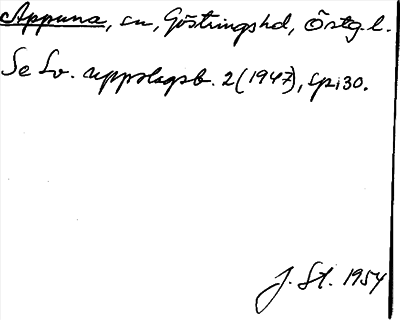 Appuna, sn, Göstringshd, Östg.l.
Se Sv. uppslagsb. 2 (1947), sp. 130.
J. St. 1954